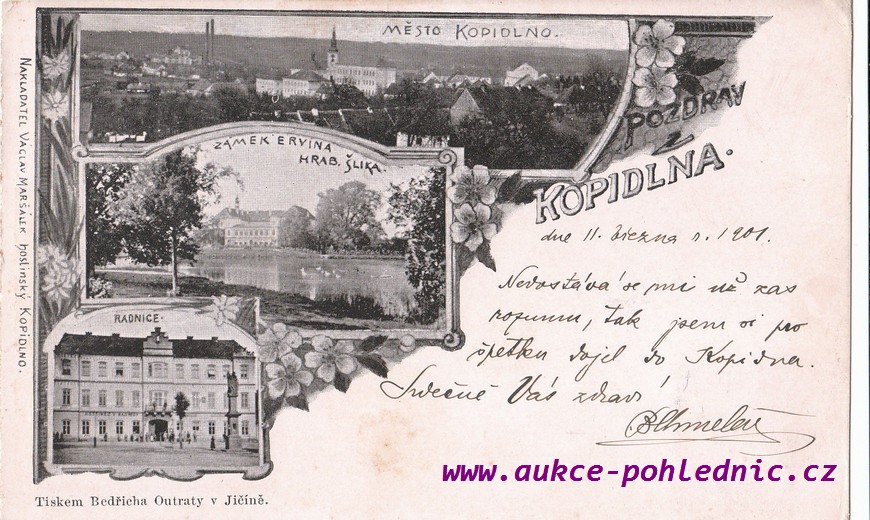 MĚSTO KOPIDLNO.
POZDRAV
Z
KOPIDLNA.
ZÁMEK ERVINA
HRAB. ŠLIKA.
RADNICE.
NAKLADATEL VÁCLAV MARŠÁLEK hostinský KOPIDLNO.
dne 11. března r. 1901.
Nedostává se mi už zas
rozumu, tak jsem si pro
špetku dojel do Kopidlna.
Srdečně Vás zdraví
Tiskem Bedřicha Outraty v Jičíně.
www.aukce-pohlednic.cz